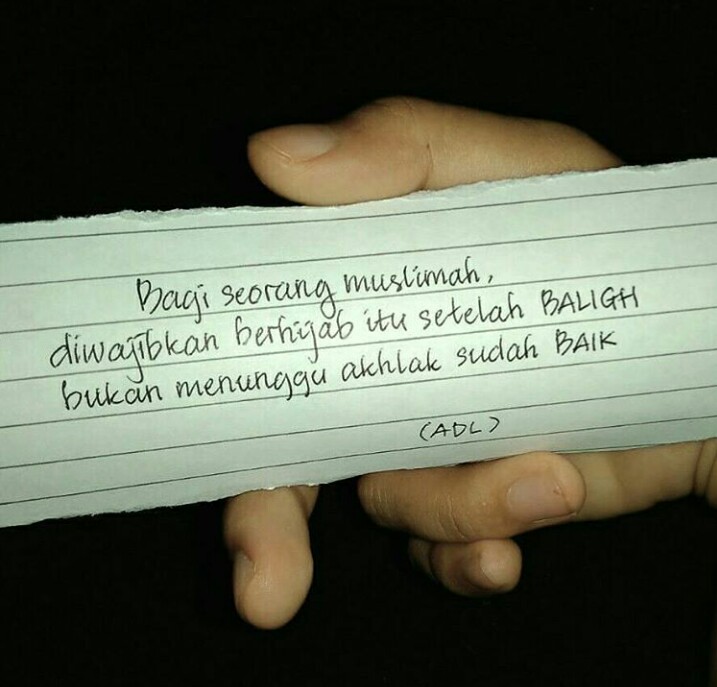 Bagi seorang muslimah,
diwajibkan berhijab itu setelah BALIGH
bukan menunggu akhlak sudah BAIK
(ADL)